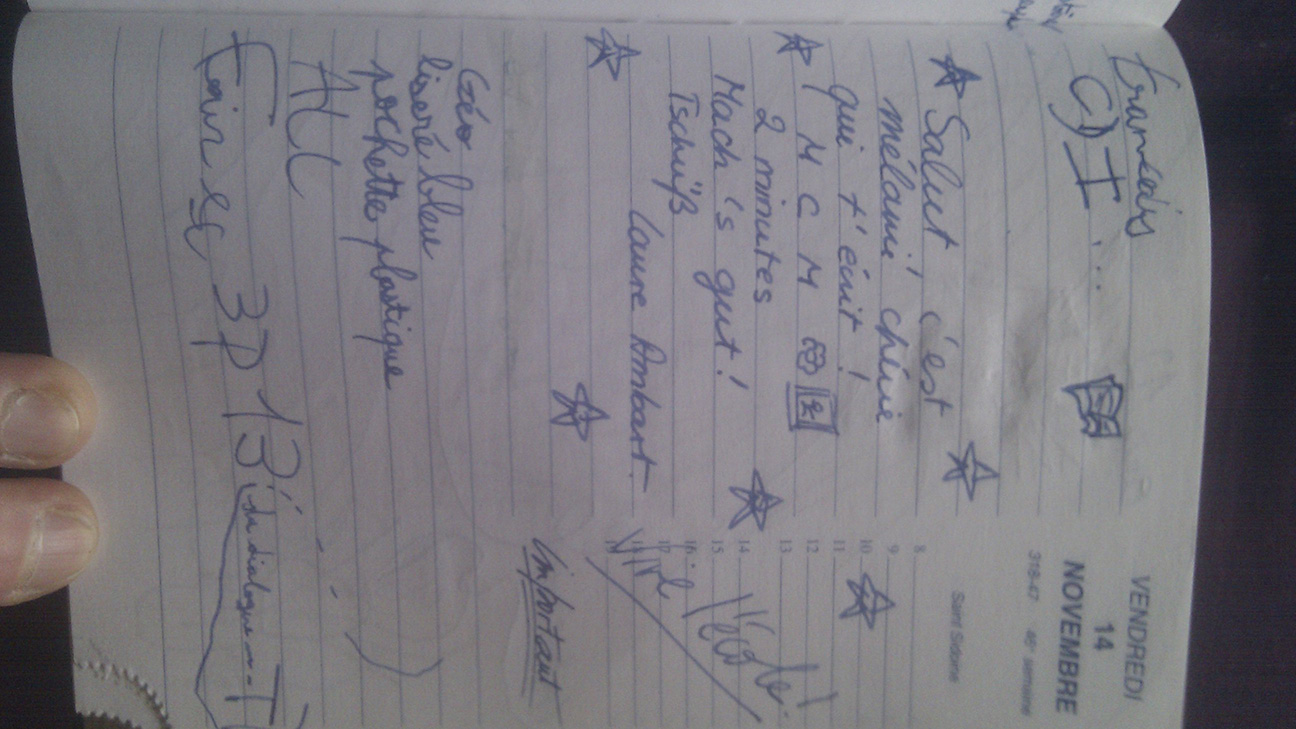 VENDREDI
14
NOVEMBRE
318-47 46e semaine
Saint Sidoine
8
9
10
11
12
13
14
15
16
17
Français
C) I ...
Salut, c'est
mélanie chérie
qui t'écrit !
M C M
2 minutes
Mach's gut !
Tschüß
Laure Ambart
Important
Géo
liseré bleu
pochette plastique
All
Faire ex 3 p 13
du dialogue